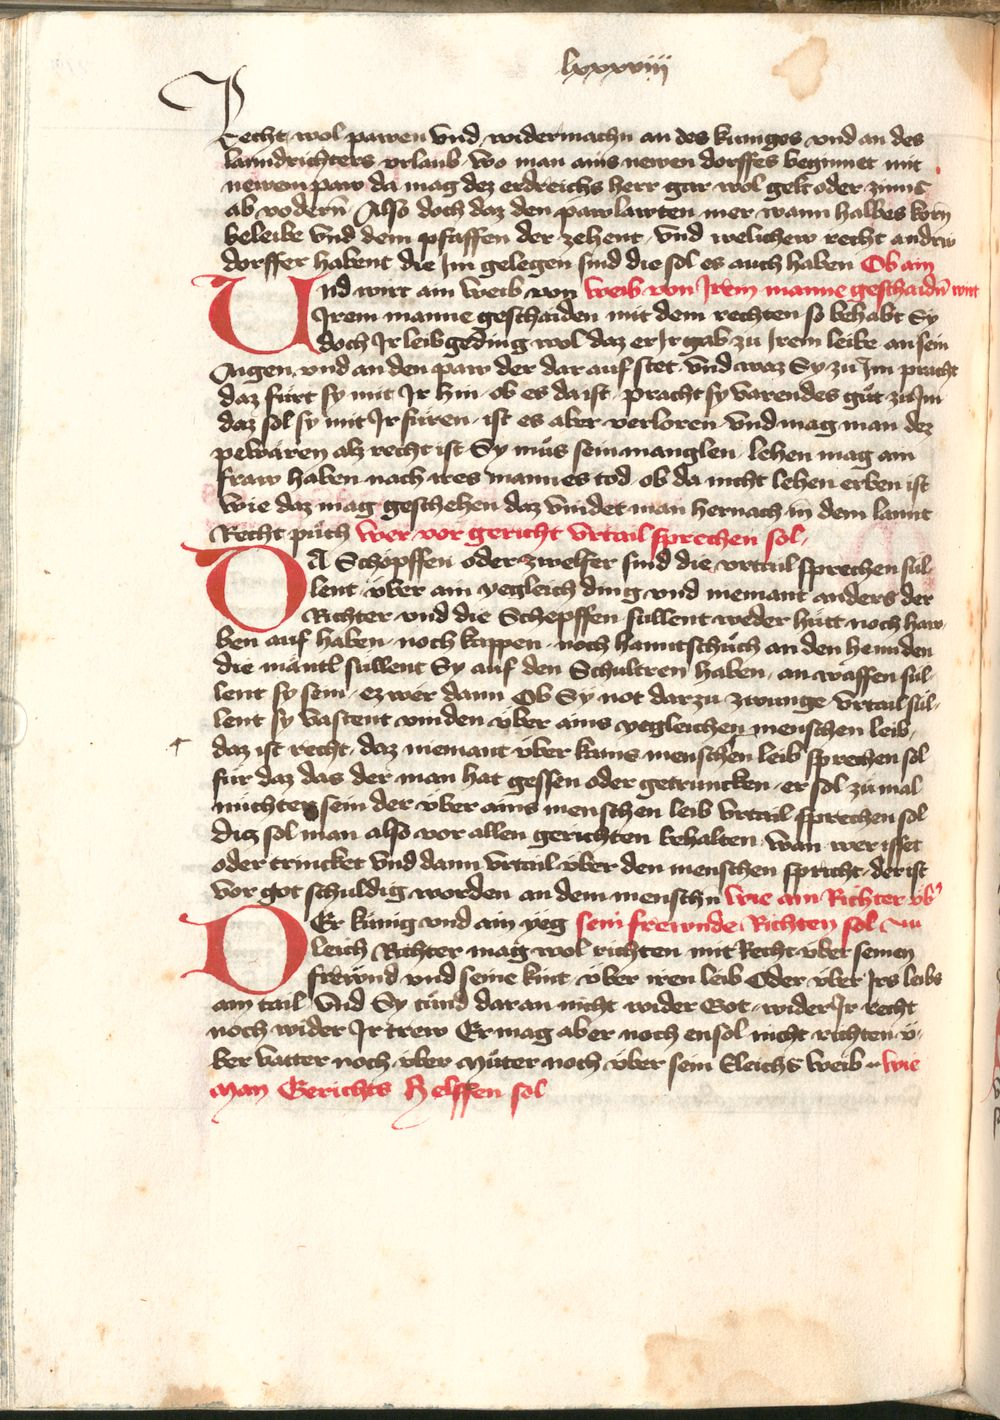 lxxxviii
Recht wol pawen vnd widermachn an des kuniges vnd an des
lanndrichters vrlaub · wo man ains newen dorffes beginnet mit
newem paw da mag dez erdreichs herr gar wol gelt oder zinns
ab vodern̄ Also doch daz den pawlawten mer wann halbes korn
beleibe Vnd dem pfaffen der zehent · vnd welichew recht andrew
dorffer habent die Im gelegen sind die sol es auch haben Ob ain
Vnd wirt ain weib von weib von Irem manne geschaidn̄ wirt
Irem manne geschaiden mit dem rechten so behabt Sy
doch Ir leib geding wol daz er Ir gab zu Irem leibe an sein
Aigen vnd an den paw der dar auf stet · Vnd waz Sy zu Im pracht
daz fürt sy mit Ir hin · ob es da ist · pracht sy varendes gůt zu Im
daz sol sy mit Ir füren · ist es aber verloren Vnd mag man dez
pewären alz recht ist Sy můs sein manglen · lehen mag ain
fraw haben nach ires mannes tod · ob da nicht lehen erben ist
Wie daz mag geschehen daz vindet man hernach in dem lannt
Recht půch Wer vor gericht Vrtail sprechen sol ·
DA Schöpffen oder zwelfer sind die vrtail sprechen sül
lent · vber ain yegleich ding vnd niemant anders der
Richter vnd die Schepffen süllent weder hütt noch haw
ben auf haben · noch kappen · noch hanntschůch an den hennden
die mäntl süllent Sy auf den Schultren haben · an waffen sül
lent sy sein · ez wer dann Ob Sy not darzu zwunge Vrtail sül
lent sy Vastent vinden vber ains yegleichen menschen leib ·
daz ist recht · daz niemant vber kains menschen leib sprechen sol
für daz das der man hat gessen oder getruncken · er sol zůmal
nüchter sein der vber ains menschen leib Vrtail sprechen sol
diz sol man also vor allen gerichten behalten · wan wer isset
oder trincket Vnd dann Vrtail vber den menschen spricht · der ist
Vor got schuldig worden an dem menschn Wie ain Richter vb̾
DEr künig vnd ain yeg sein frewnde Richten sol
leich Richter mag wol richten mit Recht vber seinen
frewnd vnd seine kint · vber iren leib Oder vber Irs leibs
ain tail Vnd Sy tünd dar an nicht wider Got · wider Ir recht
noch wider Ir trew Er mag aber noch ensol nicht richten v̈
ber Vatter noch vber Můter noch vber sein Eleichs weib · Wie
Man Gerichts Helffen sol